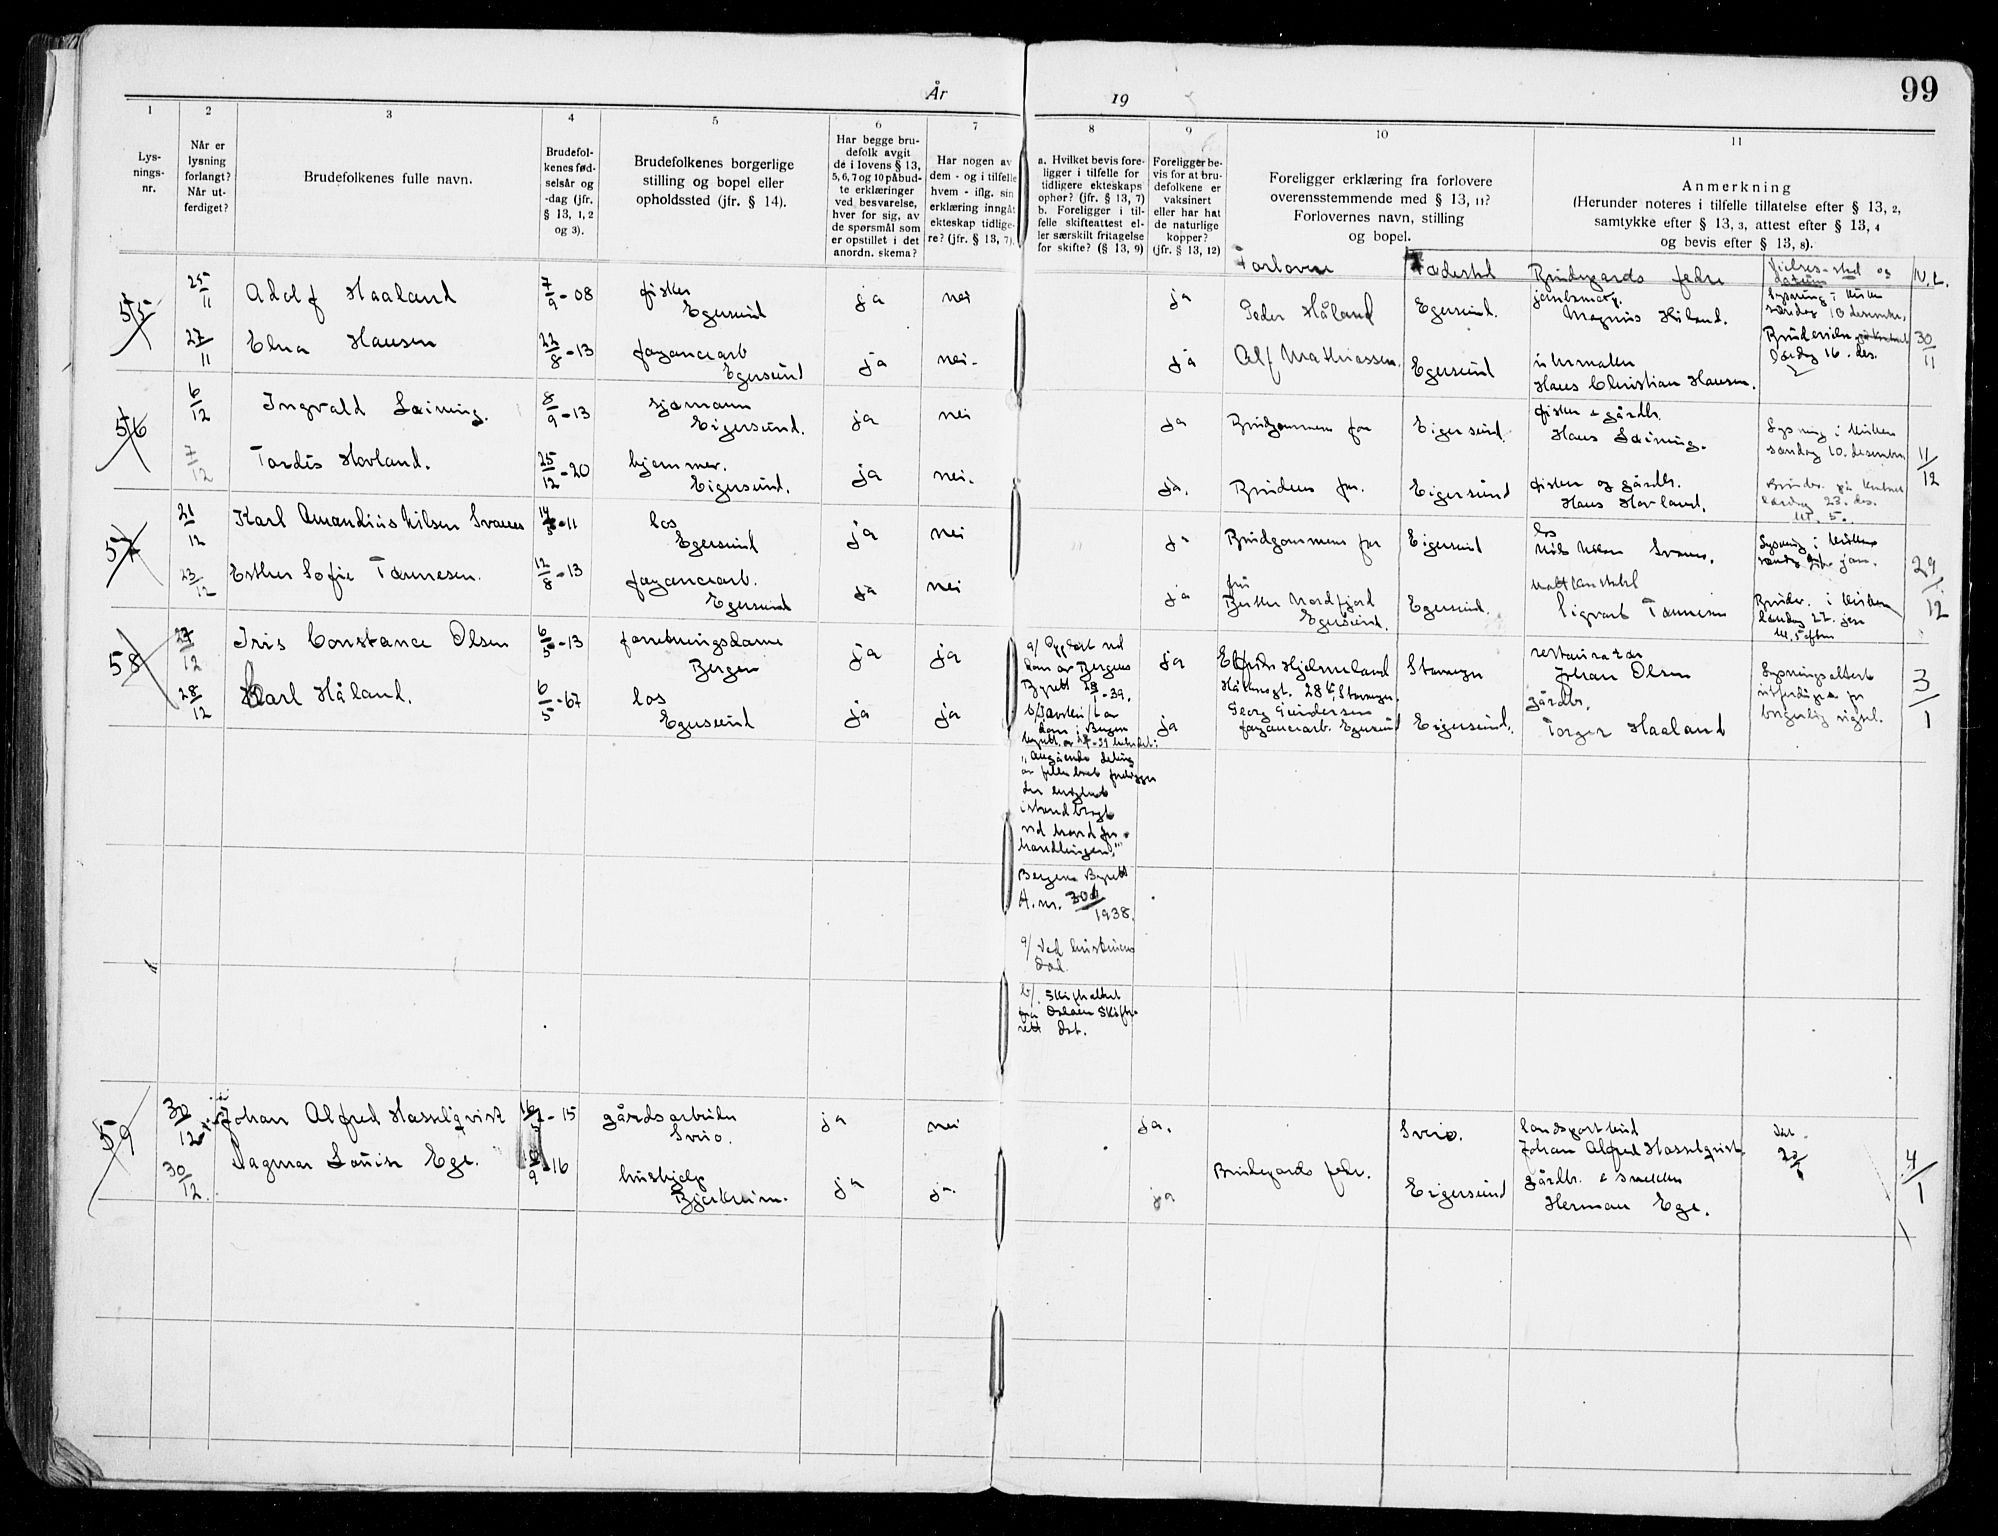 99
År 19
1
Lys-
nings-
nr.
2
Når er
lysning
forlangt?
Når ut-
ferdiget?
3
Brudefolkenes fulle navn.
4
Brudefol-
kenes fød-
selsår og
-dag (jfr.
§ 13, 1, 2
og 3).
5
Brudefolkenes borgerlige
stilling og bopel eller
opholdssted (jfr. § 14).
6
Har begge bru-
defolk avgit
de i lovens § 13,
5, 6, 7 og 10 påbud-
te erklæringer
ved besvarelse,
hver for sig, av
de spørsmål som
er opstillet i det
anordn. skema?
7
Har nogen av
dem - og i tilfelle
hvem - iflg. sin
erklæring inngåt
ekteskap tidlige-
re? (jfr. § 13, 7).
8
a. Hvilket bevis fore-
ligger i tilfelle for
tidligere ekteskaps
ophør? (jfr. § 13, 7)
b. Foreligger i til-
felle skifteattest el-
ler særskilt fritagelse
for skifte? (§ 13, 9)
9
Foreligger be-
vis for at bru-
defolkene er
vaksinert
eller har hat
de naturlige
kopper?
(jfr. § 13, 12)
10
Foreligger erklæring fra forlovere
overensstemmende med § 13, 11?
Forlovernes navn, stilling
og bopel.
11
Anmerkning
(Herunder noteres i tilfelle tillatelse efter § 13, 2,
samtykke efter § 13, 3, attest efter § 13, 4
og bevis efter § 13, 8).
Forlovere Fødested Brudepars fedre Vielses-sted og
datum V.L.
55 25/11 Adolf Haaland 7/9-08 fisker
Egersund ja nei ja Peder Håland Egersund.
Magnus Håland. Lysning i kirken
søndag 10 desember
27/11 Elna Hansen 22/8-13 fayancearb
Egersund ja nei- ja Alf Mathiassen Egersund urmaker
Hans Christian Hansen.
lørdag 16. des. 30/11
56 6/12 Ingvald Leining. 8/9-13 sjømann
Eigersund. ja nei ja Brudgommens far Eigersund. fisker & gårdbr.
Hans Leining. Lysning i kirken
søndag 10. desember
7/12 Tordis Hovland. 25/12-20 hjemmev.
Eigersund. ja nei. ja. Brudens far. Eigersund fisker og gårdbr.
Hans Hovland.
lørdag 23. des.
kl. 5. 11/12
57 21/12 Karl Amandus Nilsen Svanes 11 los
Egersund ja nei ja Brudgommens far Eigersund los
Nils Nilsen Svanes. Lysning i kirken
søndag jan.
23/12 Esther Sofie Tønnesen. 12/8-13 fayancearb.
Egersund ja nei ja fru
Nordfjord
Egersund. Egersund.
Sigvart Tønnesen Brudev. i kirken
lørdag 27. jan
kl. 5 eftm 29/12
58 27/12 Iris Constance Olsen 6/5-13 forretningsdame
Bergen ja ja a/ Oppløst ved
dom av Bergens
Byrett
-39. ja Elfrida Hjelmeland
28 Stavanger Stavanger restauratør
Johan Olsen Lysningsattest
utferdiges for
borgerlig vigsel.
28/12 Karl Håland. 6/5-67 los
Egersund ja ja
dom i Bergen
ja Georg Gundersen
fayancearb. Egersund Eigersund. gårdbr.
Torger Haaland 3/1
"Angående deling
av fellesboet foreligger
istandbragt
ved hovedfor-
handlingen."
Bergens Byrett
A. nr. 1938.
a/ Ved hustruens
død.
b/. Skifteattest
fra Dalane Skifte-
rett dat.
59 30/12 Johan Alfred Hasselqvist 15 gårdsarbeider
Sveio. ja nei ja. Sveio. landspostbud
Johan Alfred Hasselqvist. dat.
30/12. Dagmar Louise Ege. 9-16 hushjelp
Bjerkreim. ja ja. ja Brudepars fedre. Eigersund gårdbr. & smed
Herman Ege. 4/1